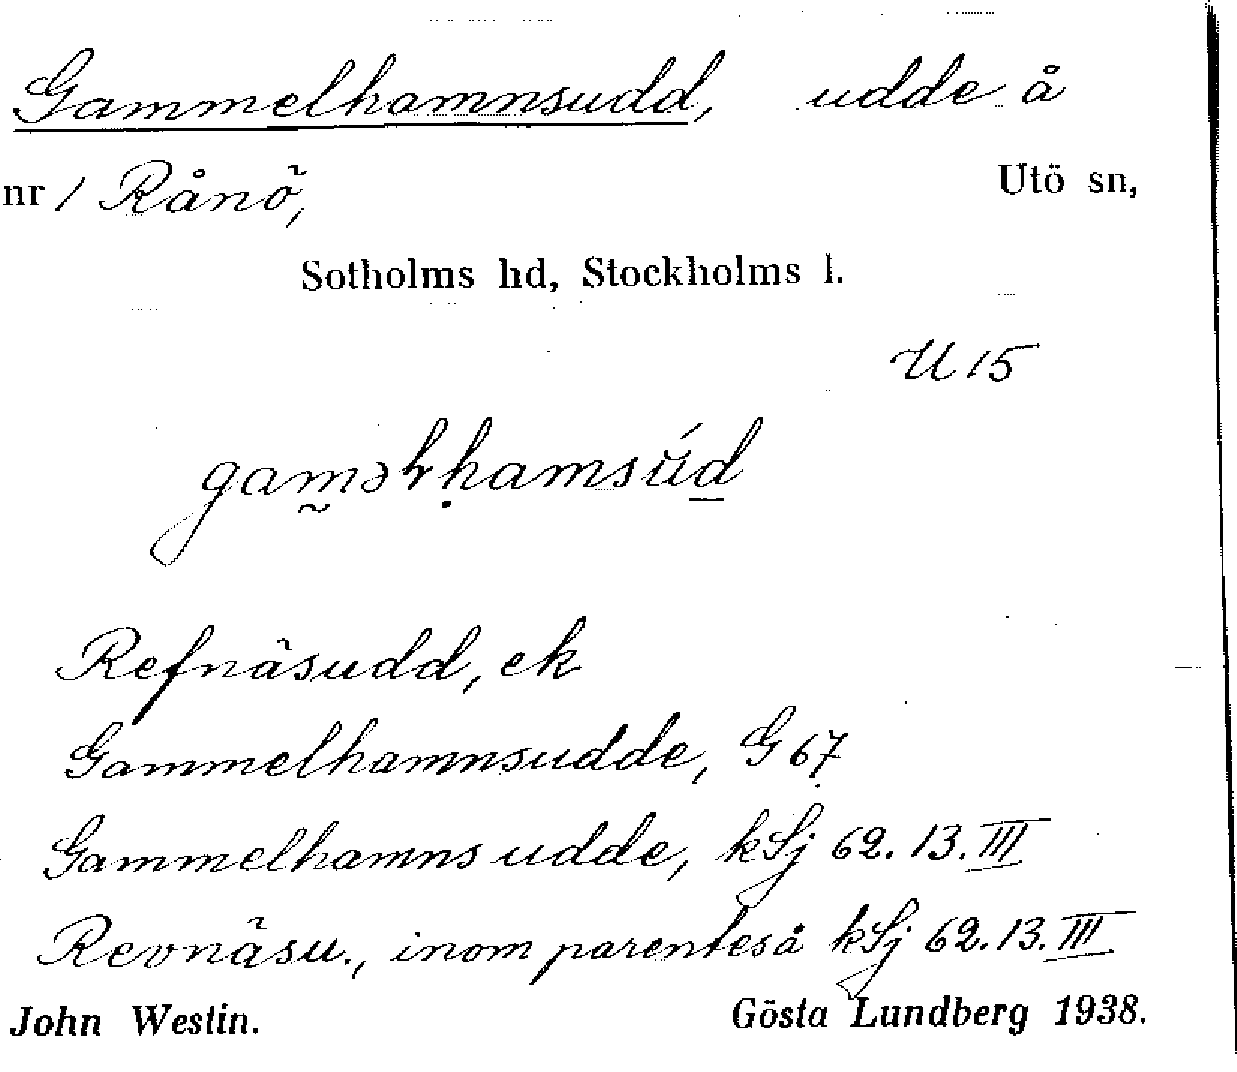 Gammelhamnsudd, udde å
nr 1 Rånö, Utö sn,
Sotholms hd, Stockholms l.
U 15
gam̰əɫḥamsŭ́d̲
Refnäsudd, ek
Gammelhamnsudde, G 67
Gammelhamns udde, kSj 62.13.III
Revnäsu., inom parentes å kSj 62.13.III
John Westin. Gösta Lundberg 1938.